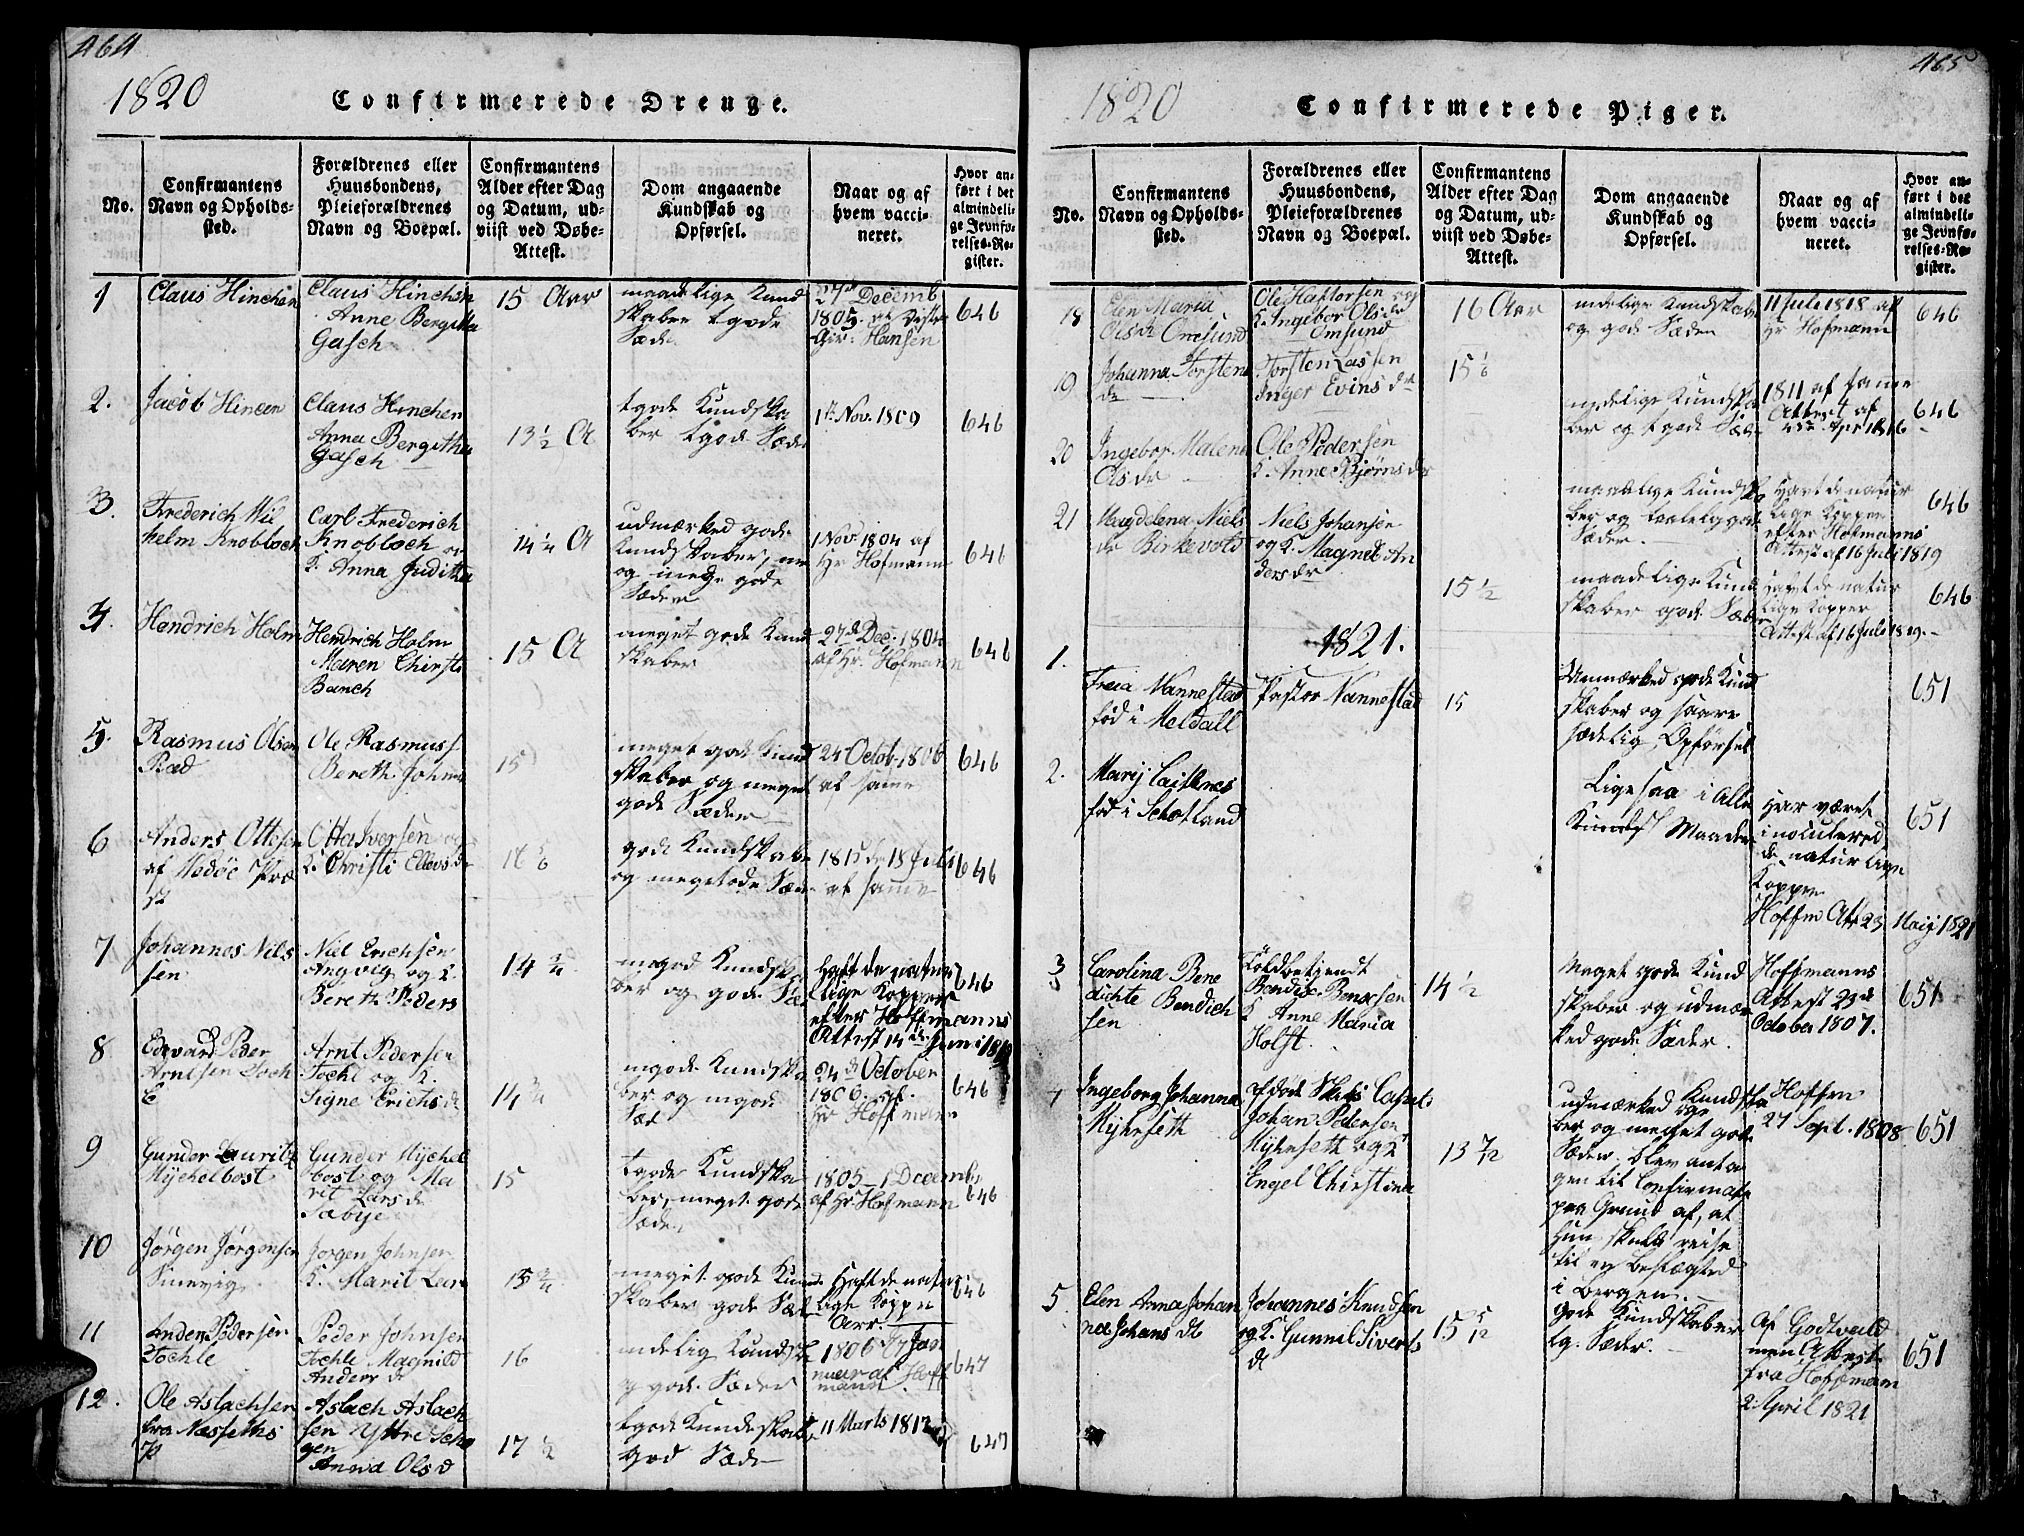 464
1820 Confirmerede Drenge.
No.
Confirmantens
Navn og Opholds-
sted.
Forældrenes eller
Huusbondens,
Pleieforældrenes
Navn og Boepæl.
Confirmantens
Alder efter Dag
og Datum, ud-
viist ved Døbe-
Attest.
Dom angaaende
Kundskab og
Opførsel.
Naar og af
hvem vacci-
neret.
Hvor an-
ført i det
almindeli-
ge Jevnfø-
relses-Re-
gister.
1
Claus Hinchen
Claus Hinchen
Anne Bergitha
Gasch
15 Aar
maadelige Kund
skaber tgode
Sæder
27de Decemb
1805 af
Hansen
646
2.
Jacob Hincen
Claus Hinchen
Anna Bergitha
Gasch
13 1/2 A
tgode Kundska
ber tgode Sæder
1te Nov. 1809
646
3.
Frederich Wil
helm Knobloch
Carl Frederich
Knobloch og
K. Anna Juditha
14 1/4 A
udmærked gode
Kundskaber,
og mege gode
Sæder
1 Nov 1804 af
Hr Hofmann
646
4.
Hendrich Holm
Hendrich Holm
Maren Chirsti
Banch
15 A
meget gode Kund
skaber
27de Dec. 1804
af Hr. Hofmann
646
5.
Rasmus Olsen
Rød
Ole Rasmuss
Bereth Johns
15
meget gode Kund
skaber og meget
gode Sæder
24 Octob. 1806
af samme
646
6
Anders Ottesen
af Wedøe
Otte Iversen og
K. Christi
gode Kundskabe
og
18 Juli
af samme
646
7
Johannes Nils
sen
Niel Erichsen
Angvig og K.
Bereth Peders
14 3/4
mgod Kundska
ber og gode Sæd
Haft de natur
lige Kopper
efter Hoffmanns
Attest 14de Juni
646
8
Edevard Peder
Arntsen Toch
le
Arnt Pedersen
Tochl og K.
Signe Erichs d
14 3/4
mgode Kundska
ber og mgode
Sæd
24de October
1806 af
Hr Hoffmann
646
9
Gunder Lauritz
Myckelbost
Gunder Myckel
bost og Ma
rit Lars d
Sæbye
15
tgode Kundska
ber meget gode
Sæder
1805 1 Decemb
af Hr. Hofmann
646
10
Jørgen Jørgensen
Sinevig
Jorgen Johnsen
K. Marit Lars
15 3/4
meget gode Kund
skaber gode Sæd
Haft de natur
lige Koppe
Arr
646
11
Anders Pedersen
Tochle
Peder Johnsen
Tochle Magnild
Anders d
16
mdelig Kundsk
g gode Sæder
1806 17 Jan
nuar af Hoff
mann
647
12.
Ole Aslachsen
fra Næsseths
P
Aslach Aslach
sen Yttre
Anna Ols d
17 1/2
tgode Kundeskab
god Sæde
11 Marts
647
465
1820 Confirmerede Piger.
No.
Confirmantens
Navn og Opholds-
sted.
Forældrenes eller
Huusbondens,
Pleieforældrenes
Navn og Boepæl.
Confirmantens
Alder efter Dag
og Datum, ud-
viist ved Døbe-
Attest.
Dom angaaende
Kundskab og
Opførsel.
Naar og af
hvem vacci-
neret.
Hvor an-
ført i det
almindeli-
ge Jevnfø-
relses-Re-
gister.
18
Olen Maria
Olsdr Omsund
Ole Hattorsen og
K. Ingebor Olsdr
Omsund
16 Aar
mdelige Kundskabe
og gode Sæder
11 Juli 1818 af
Hr Hofmann
646
19
Johanna Torstens
dr
Torsten Lassen
Inger Evins dr
mdelige Kundska
ber og tgode Sæde
1811 af samme
Attest af
Apr 1816
646
20
Ingebor Malene
Ols dr
Ole Pedersen
K. Anne Bjørns dr
maadelige Kundska
ber og
Sæder
Havt de natur
lige Kopper
efter Hofmanns
Attest af 16 Juli 1819
646
21
Magdelena Niels
dr Birkevold
Niels Johansen
og K. Magneth An
dersdr
15 1/2
maadelige Kund
skaber gode Sæder
Haft de natur
lige Kopper
Attest af 16 Juli 1819.
646
1821.
1.
Nannestad
fød i Meldall
Pastor Nannestad
15
Udmærked gode Kund
skaber og saare
sædelig Opførsel
651
2.
Marij Caithnes
fød i Schotland
Ligesaa i Alle
Maader
Har været
inoculered
de naturlige
Koppe
Hoffm Att 23 Maij 1821
651
3
Carolina Bene
dichte Bendich
sen
Toldbetjendt
Bendix Benxsen
K Anne Maria
Holst
14 1/2
Meget gode Kund
skaber og udmær
ked gode Sæder.
Hoffmanns
Attest 23de
October 1807.
651
4
Ingeborg Johanna
Myhrseth
afdøde Skibs Capt.
Johan Pedersen
Myhrseth og K
Engel Chirstina
13 7/12
udmærked Kundska
ber og meget gode
Sæder. blev anta
gen til Confirmat
paa Grund af, at
hun skulde reise
til en beslægted
i Bergen.
Hoffm
27 Sept. 1808
651
5
Elen Anna Johan
ne Johans dt
Johannes Knudsen
og K. Gunnil Sivert
dt
15 5/12
gode Kundskaber
tg. Sæder.
Af Godtvald
men Attest
fra Hoffmann
2 April 1821
651